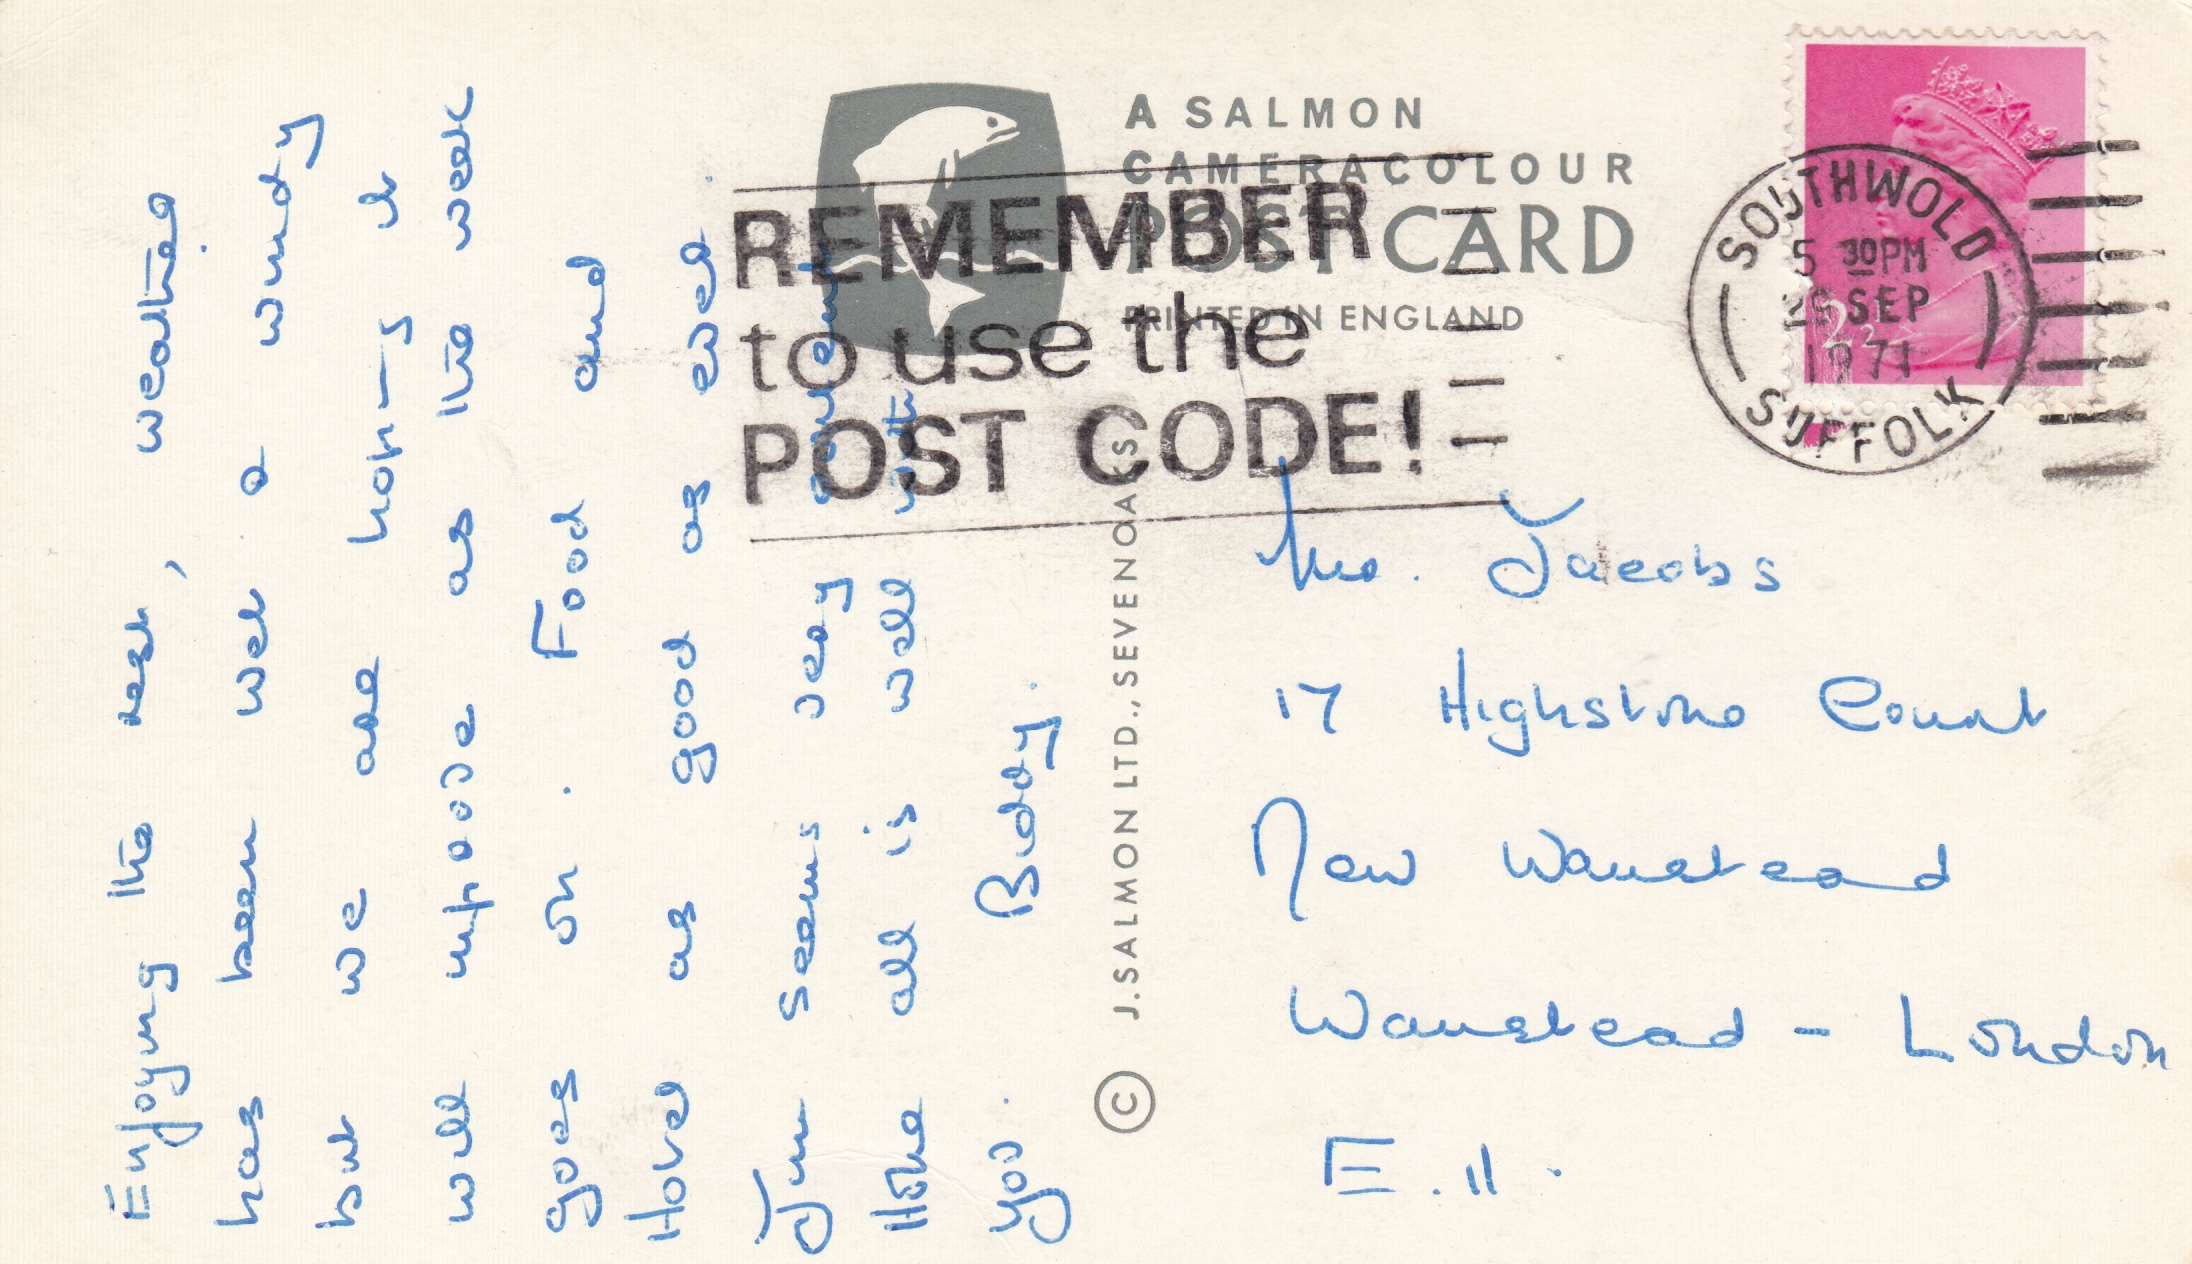 Enjoying the rest, weather
has been wet & windy
but we are hoping it
will improve as the week
goes on. Food and
Hotel as good as ever.
Jim seems very
Hope all is well with
you. Biddy.
A SALMON
CAMERACOLOUR
POST CARD
PRINTED IN ENGLAND
REMEMBER
to use the
POST CODE!
SOUTHWOLD
5 30PM
SEP
1971
SUFFOLK
2½
© J.SALMON LTD., SEVENOAKS
Mrs. Jacobs
17 Highstone Court
New Wanstead
Wanstead - London
E.11.